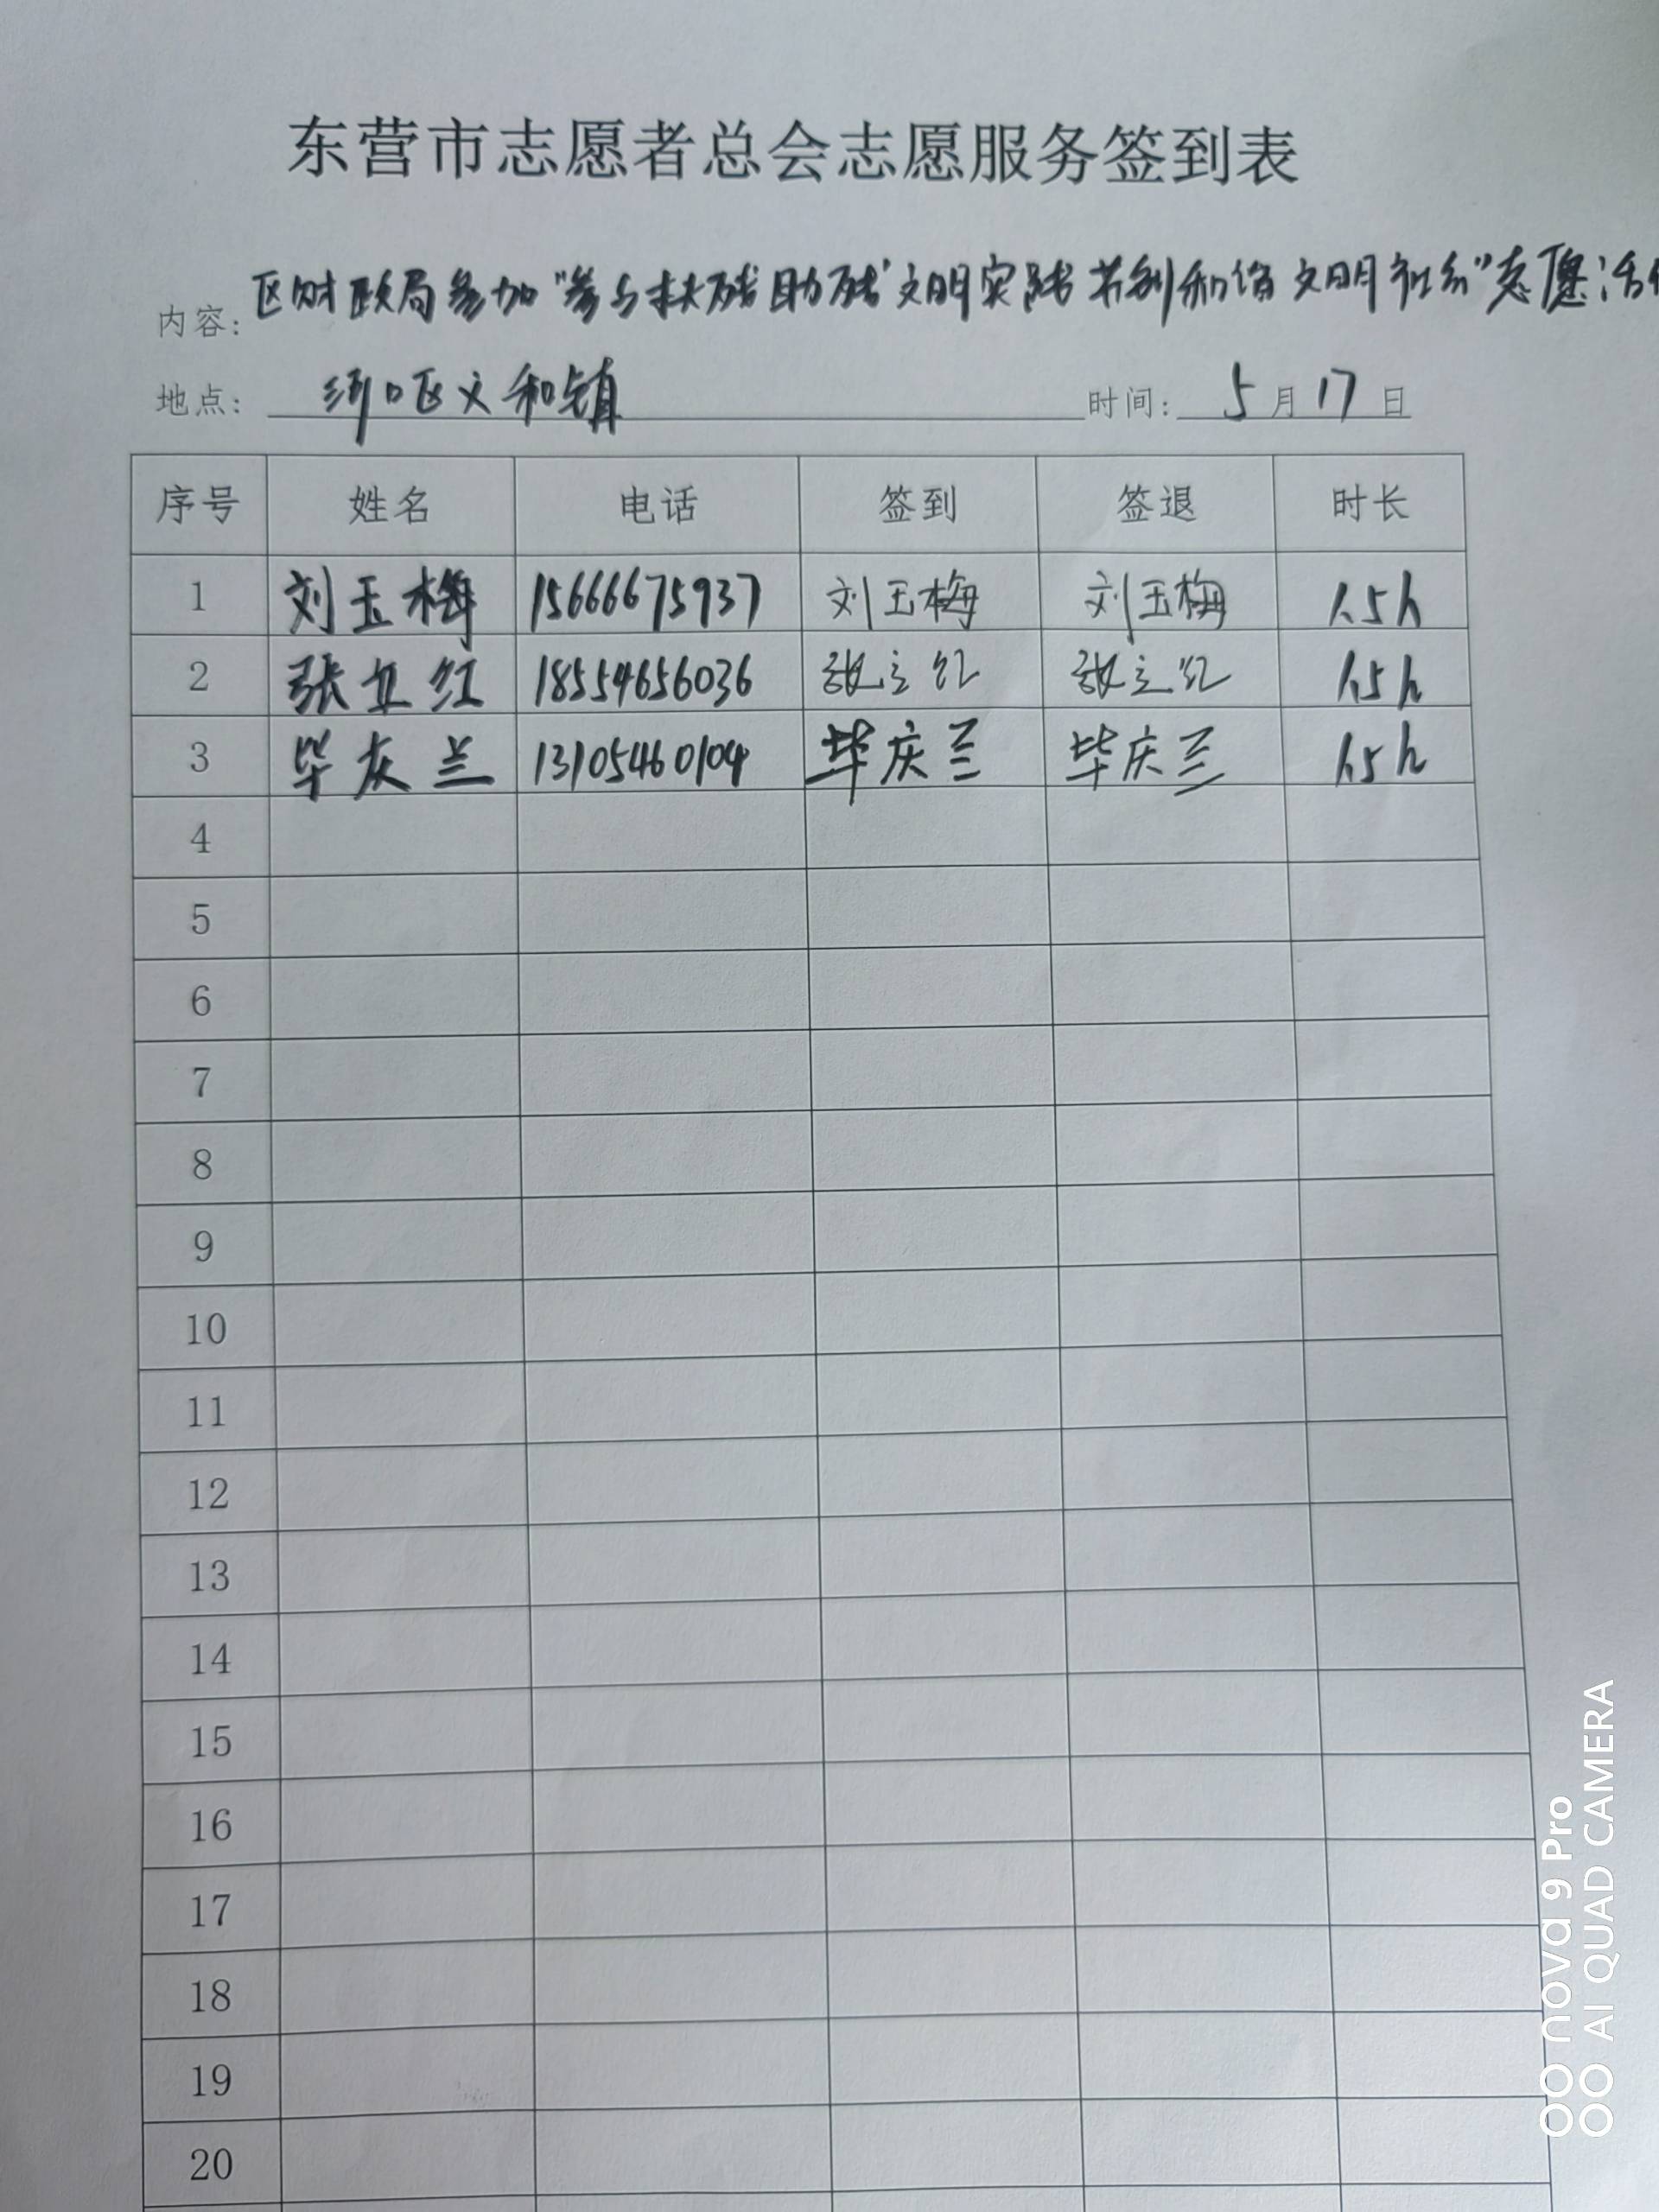 东营市志愿者总会志愿服务签到表
内容: 区财政局参加“参与扶残助残 文明实践 共创和谐文明社会”志愿活
地点: 河口区义和镇 时间: 5月17日
序号 姓名 电话 签到 签退 时长
1 刘玉梅 15666675937 刘玉梅 刘玉梅 1.5h
2 张立红 18554656036 张立红 张立红 1.5h
3 毕庆兰 13105460104 毕庆兰 毕庆兰 1.5h
4
5
6
7
8
9
10
11
12
13
14
15
16
17
18
19
20
nova 9 Pro
AI QUAD CAMERA